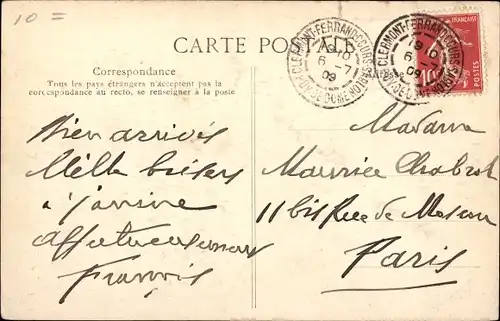 10 =
CARTE POSTALE
CLERMONT-FERRAND
PUY-DE-DOME
19 10
6 - 7
09
CLERMONT-FERRAND
PUY-DE-DOME
19 10
6 - 7
09
FRANÇAISE
POSTES
10
Correspondance
Tous les pays étrangers n'acceptent pas la
correspondance au recto, se renseigner à la poste
Bien arrivés
Mille baisers
à Janine
Affectueusement
François
Madame
Maurice Chabrol
11 bis Rue de
Paris